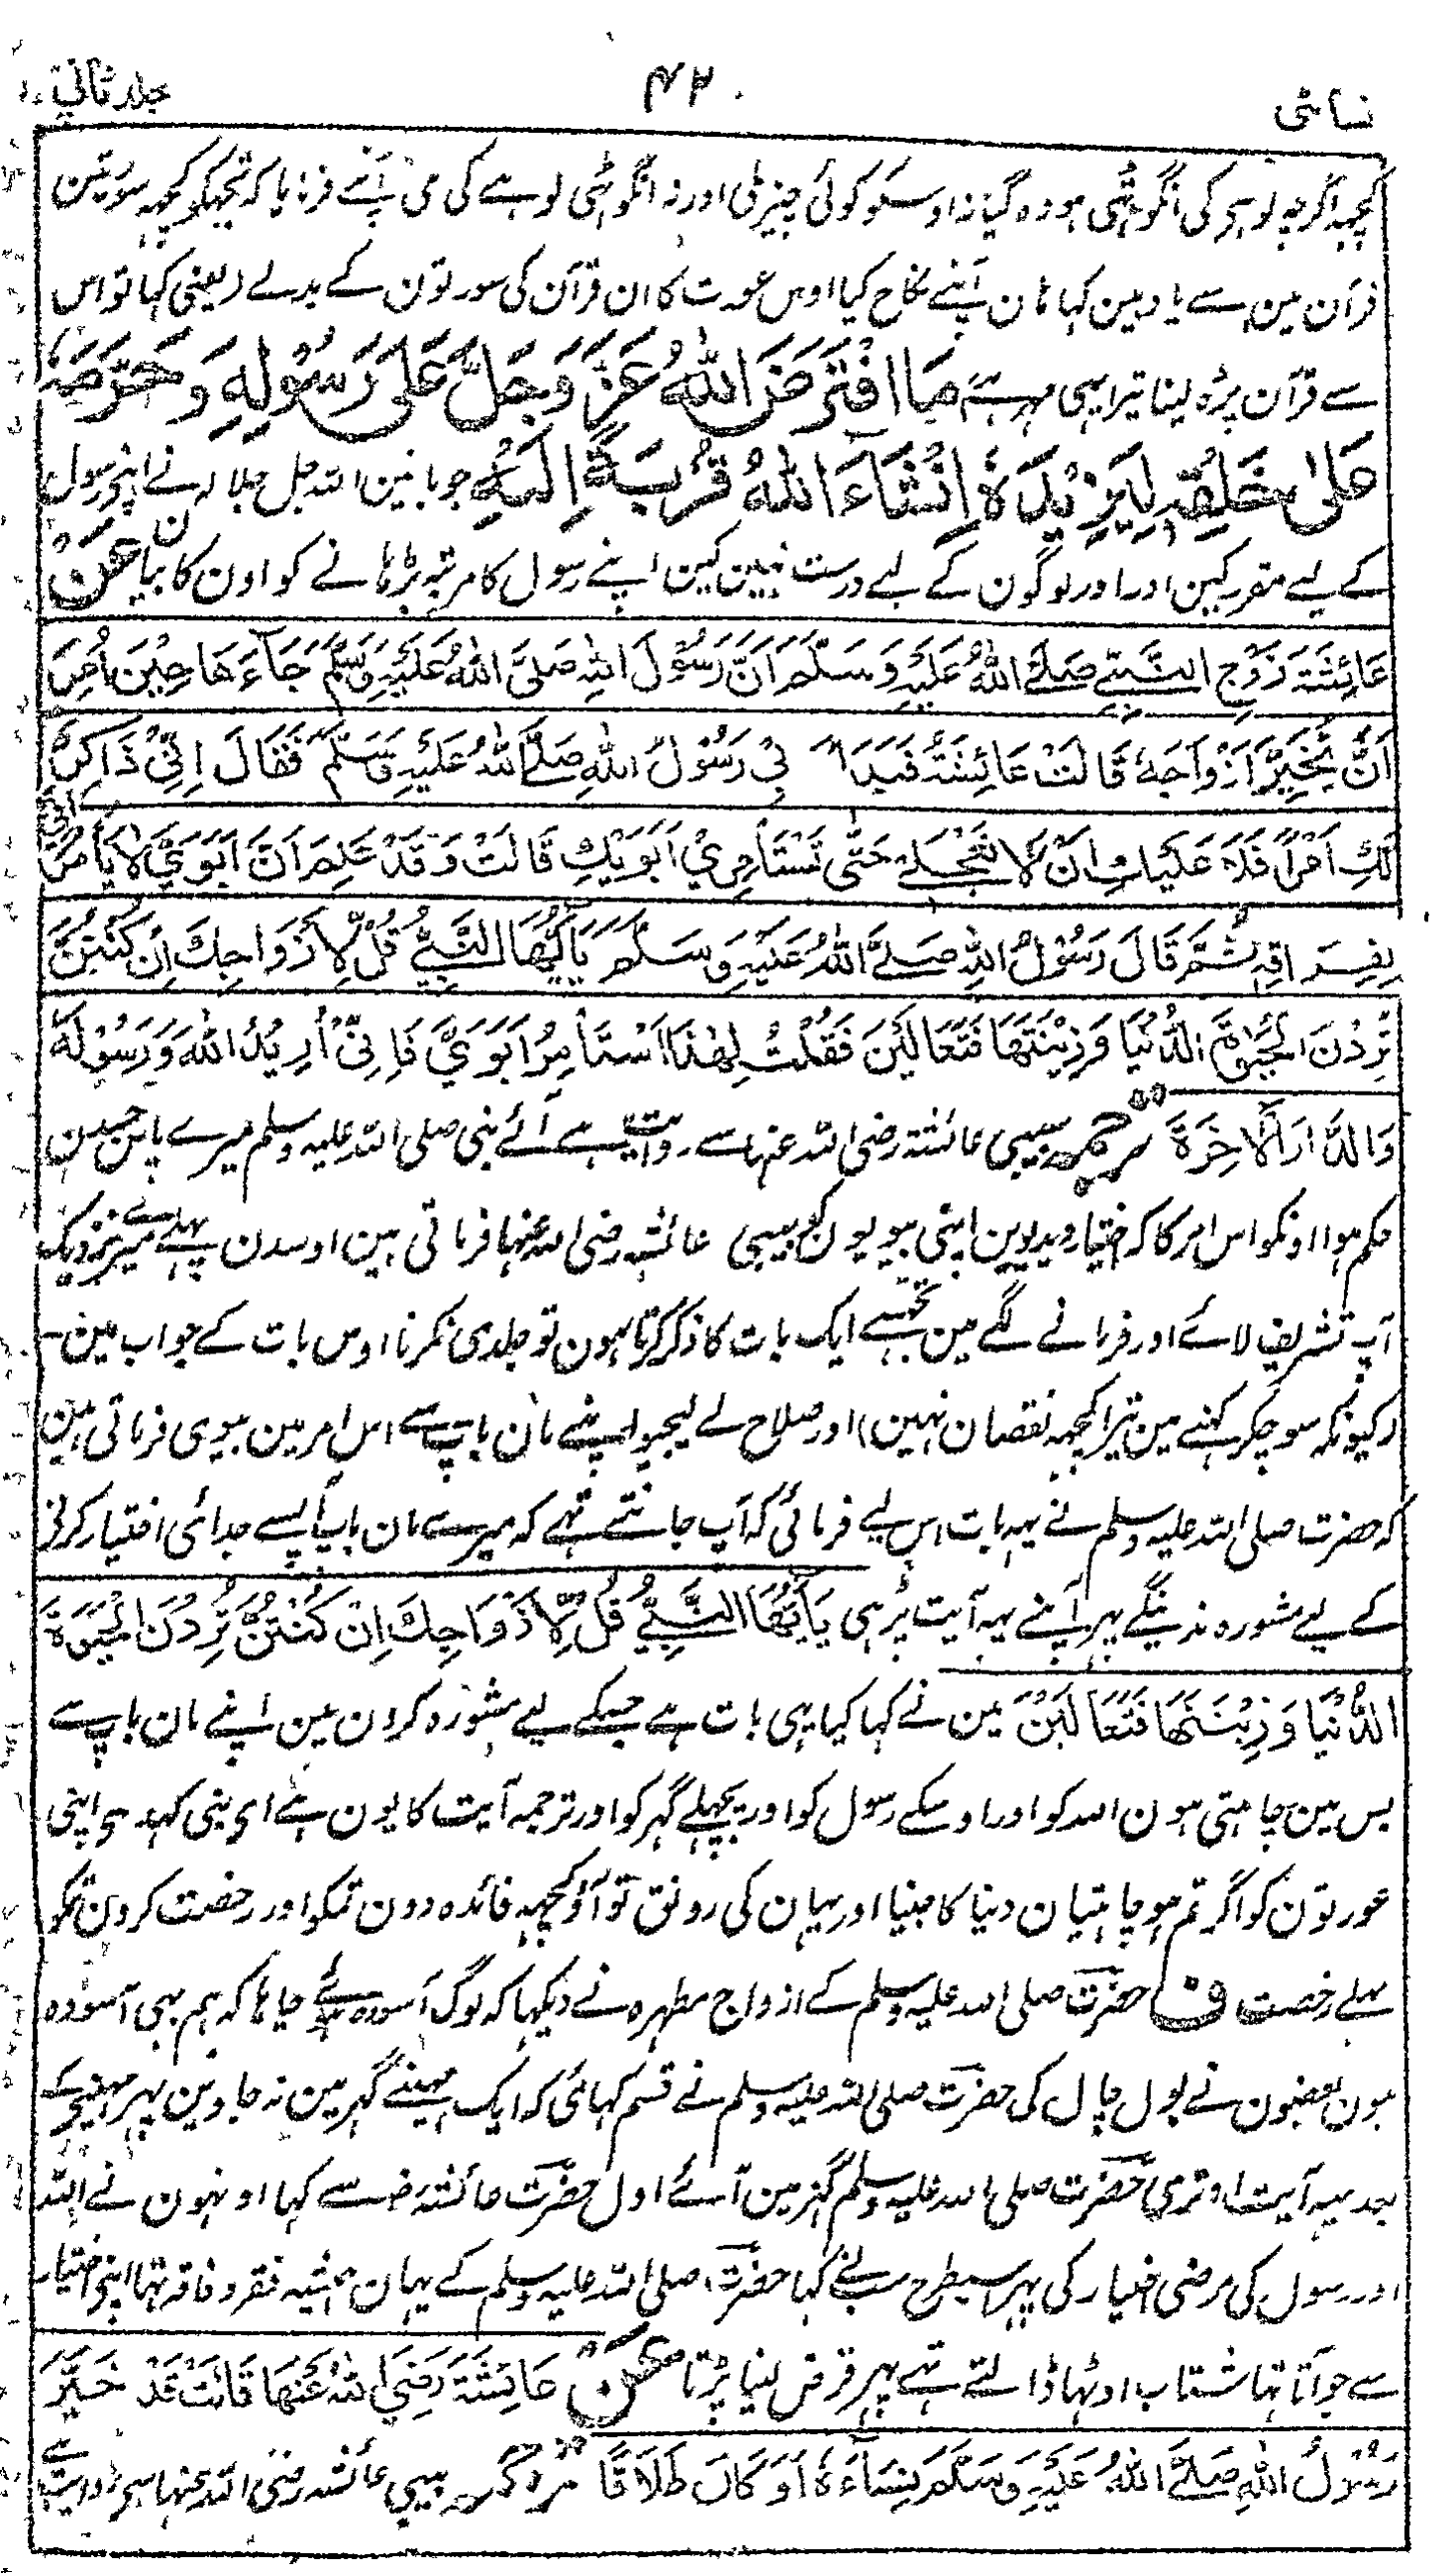 نسائی ۴۲۰ جلد ثانی
کچہہ اگرچہ لوہے کی انگوٹھی ہو وہ گیا نہ اوسکو کوئی چیز ملی اور نہ انگوٹھی لوہے کی ملی آپنے فرمایا کہ تجہکو کچہہ سورتین
قرآن مین سے یاد ہین کہا ہان آپنے نکاح کیا اوس عورت کا ان قرآن کی سورتون کے بدلے (یعنی کہا تو اس
سے قرآن پڑہ لینا تیرا یہی مہر ہے مَا افْتَرَضَ اللهُ عَزَّ وَجَلَّ عَلَى رَسُوْلِهِ وَحَرَّمَهُ
عَلٰى خَلْقِهٖ لِيَزِيْدَهٗ اِنْشَاءَ اللهُ قُرْبَةً اِلَيْهِ جو باتین اللہ جل جلالہ نے اپنے رسول
کے لیے مقرر کین اور اور لوگون کے لیے درست نہین کین اپنے رسول کا مرتبہ بڑہانے کو اون کا بیان عَنْ
عَائِشَةَ زَوْجِ النَّبِيِّ صَلَّى اللهُ عَلَيْهِ وَسَلَّمَ اَنَّ رَسُوْلَ اللهِ صَلَّى اللهُ عَلَيْهِ وَسَلَّمَ جَاءَهَا حِيْنَ اُمِرَ
اَنْ يُخَيِّرَ اَزْوَاجَهُ قَالَتْ عَائِشَةُ فَبَدَاَ بِيْ رَسُوْلُ اللهِ صَلَّى اللهُ عَلَيْهِ وَسَلَّمَ فَقَالَ اِنِّيْ ذَاكِرٌ
لَكِ اَمْرًا فَلَا عَلَيْكِ اَنْ لَا تُعَجِّلِيْ حَتّٰى تَسْتَأْمِرِيْ اَبَوَيْكِ قَالَتْ وَقَدْ عَلِمَ اَنَّ اَبَوَيَّ لَا يَأْمُرَانِيْ
بِفِرَاقِهٖ ثُمَّ قَالَ رَسُوْلُ اللهِ صَلَّى اللهُ عَلَيْهِ وَسَلَّمَ يَا اَيُّهَا النَّبِيُّ قُلْ لِاَزْوَاجِكَ اِنْ كُنْتُنَّ
تُرِدْنَ الْحَيٰوةَ الدُّنْيَا وَزِيْنَتَهَا فَتَعَالَيْنَ فَقُلْتُ لِهٰذَا اَسْتَأْمِرُ اَبَوَيَّ فَاِنِّيْ اُرِيْدُ اللهَ وَرَسُوْلَهٗ
وَالدَّارَ الْاٰخِرَةَ ترجمہ بیبی عائشہ رضی اللہ عنہا سے روایت ہے آئے نبی صلی اللہ علیہ وسلم میرے پاس جسدن
حکم ہوا اونکو اس امر کا کہ اختیار دیدیوین اپنی بیویون کو بیبی عائشہ رضی اللہ عنہا فرماتی ہین اوسدن پہلے میرے نزدیک
آپ تشریف لائے اور فرمانے لگے مین تجہسے ایک بات کا ذکر کرتا ہون تو جلدی نکرنا اوس بات کے جواب مین۔
(کیونکہ سوچکر کہنے مین تیرا کچہہ نقصان نہین) اور صلاح لے لیجیو اپنے مان باپ سے اس امر مین بیوی فرماتی ہین
کہ حضرت صلی اللہ علیہ وسلم نے یہہ بات اس لیے فرمائی کہ آپ جانتے تہے کہ میرے مان باپ آپسے جدائی اختیار کرنے
کے لیے مشورہ نہ دینگے پہر آپنے یہہ آیت پڑہی يٰاَيُّهَا النَّبِيُّ قُلْ لِّاَزْوَاجِكَ اِنْ كُنْتُنَّ تُرِدْنَ الْحَيٰوةَ
الدُّنْيَا وَزِيْنَتَهَا فَتَعَالَيْنَ مین نے کہا کیا یہی بات ہے جسکے لیے مشورہ کرون مین اپنے مان باپ سے
بس مین چاہتی ہون اللہ کو اور اوسکے رسول کو اور پچہلے گہر کو اور ترجمہ آیت کا یون ہے ای نبی کہدے اپنی
عورتون کو اگر تم ہو چاہتیان دنیا کا جینا اور یہان کی رونق تو آؤ کچہہ فائدہ دون تمکو اور رخصت کرون تمکو
بہلے رخصت ف حضرت صلی اللہ علیہ وسلم کے ازواج مطہرہ نے دیکہا کہ لوگ آسودہ ہوئے چاہا کہ ہم بہی آسودہ
ہون بعضون نے بول چال کی حضرت صلی اللہ علیہ وسلم نے قسم کہائی کہ ایک مہینے گہر مین نہ جاوین پہر مہینے کے
بعد یہہ آیت اوتری حضرت صلی اللہ علیہ وسلم گہر مین آئے اول حضرت عائشہ رض سے کہا اونہون نے اللہ
اور رسول کی مرضی اختیار کی پہر اسیطرح سبنے کہا حضرت صلی اللہ علیہ وسلم کے یہان ہمیشہ فقر و فاقہ تہا اپنے اختیار
سے جو آتا تہا شتاب اوٹہا ڈالتے تہے پہر قرض لینا پڑتا عَنْ عَائِشَةَ رَضِيَ اللهُ عَنْهَا قَالَتْ قَدْ خَيَّرَ
رَسُوْلُ اللهِ صَلَّى اللهُ عَلَيْهِ وَسَلَّمَ نِسَاءَهٗ اَوَ كَانَ طَلَاقًا ترجمہ بیبی عائشہ رضی اللہ عنہا سے روایت ہے